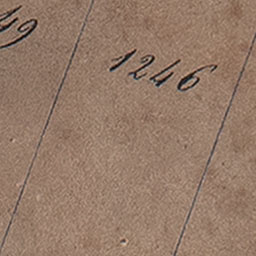 49
1246